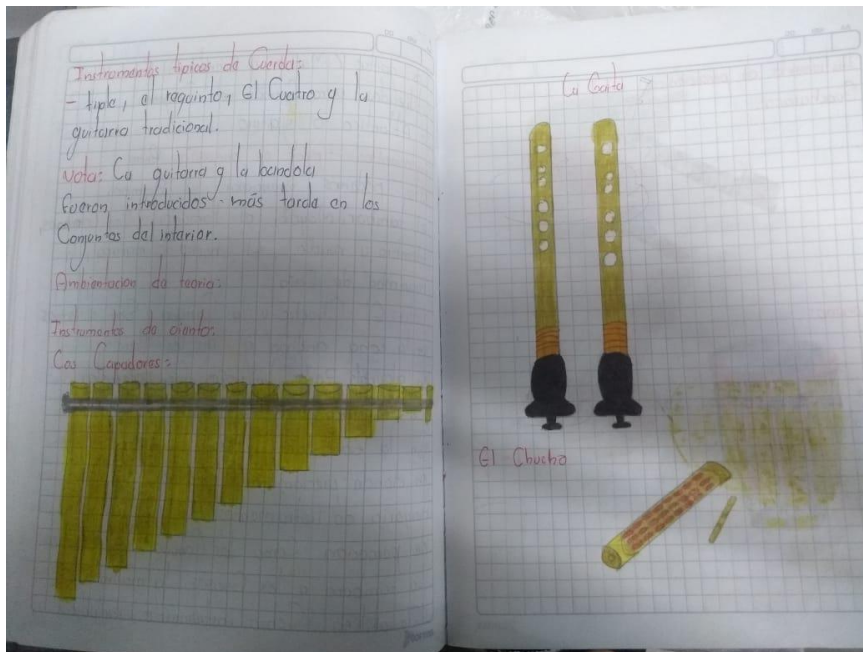 Instrumentos tipicos de Cuerda:
- tiple, el requinto, El Cuatro y la
guitarra tradicional.
Nota: La guitarra y la bandola
fueron introducidos - más tarde en los
Conjuntos del interior.
Ambientacion de teoria:
Instrumentos de viento:
Los Capadores:
La Gaita
El Chucho